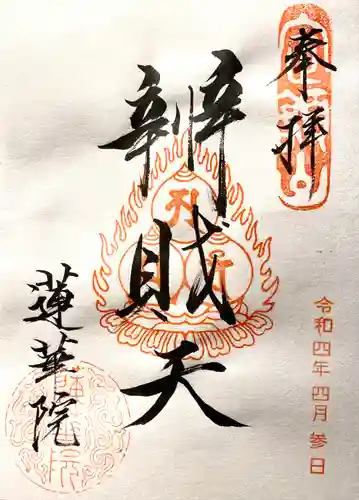 奉拝
辨財天
蓮華院
令和四年四月参日